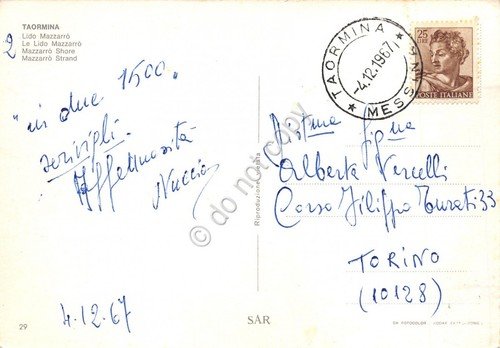 TAORMINA
Lido Mazzarrò
Le Lido Mazzarrò
Mazzarrò Shore
Mazzarrò Strand
2
"in due 1500.
scrivigli.
Affettuosità
Nuccio
4-12-67
29
SAR
Riproduzione vietata
do not copy
TAORMINA
-4.12.1967
* MESSINA *
25
LIRE
POSTE ITALIANE
Gma
Alberta Vercelli
Corso Filippo Turati 33
TORINO
(10128)